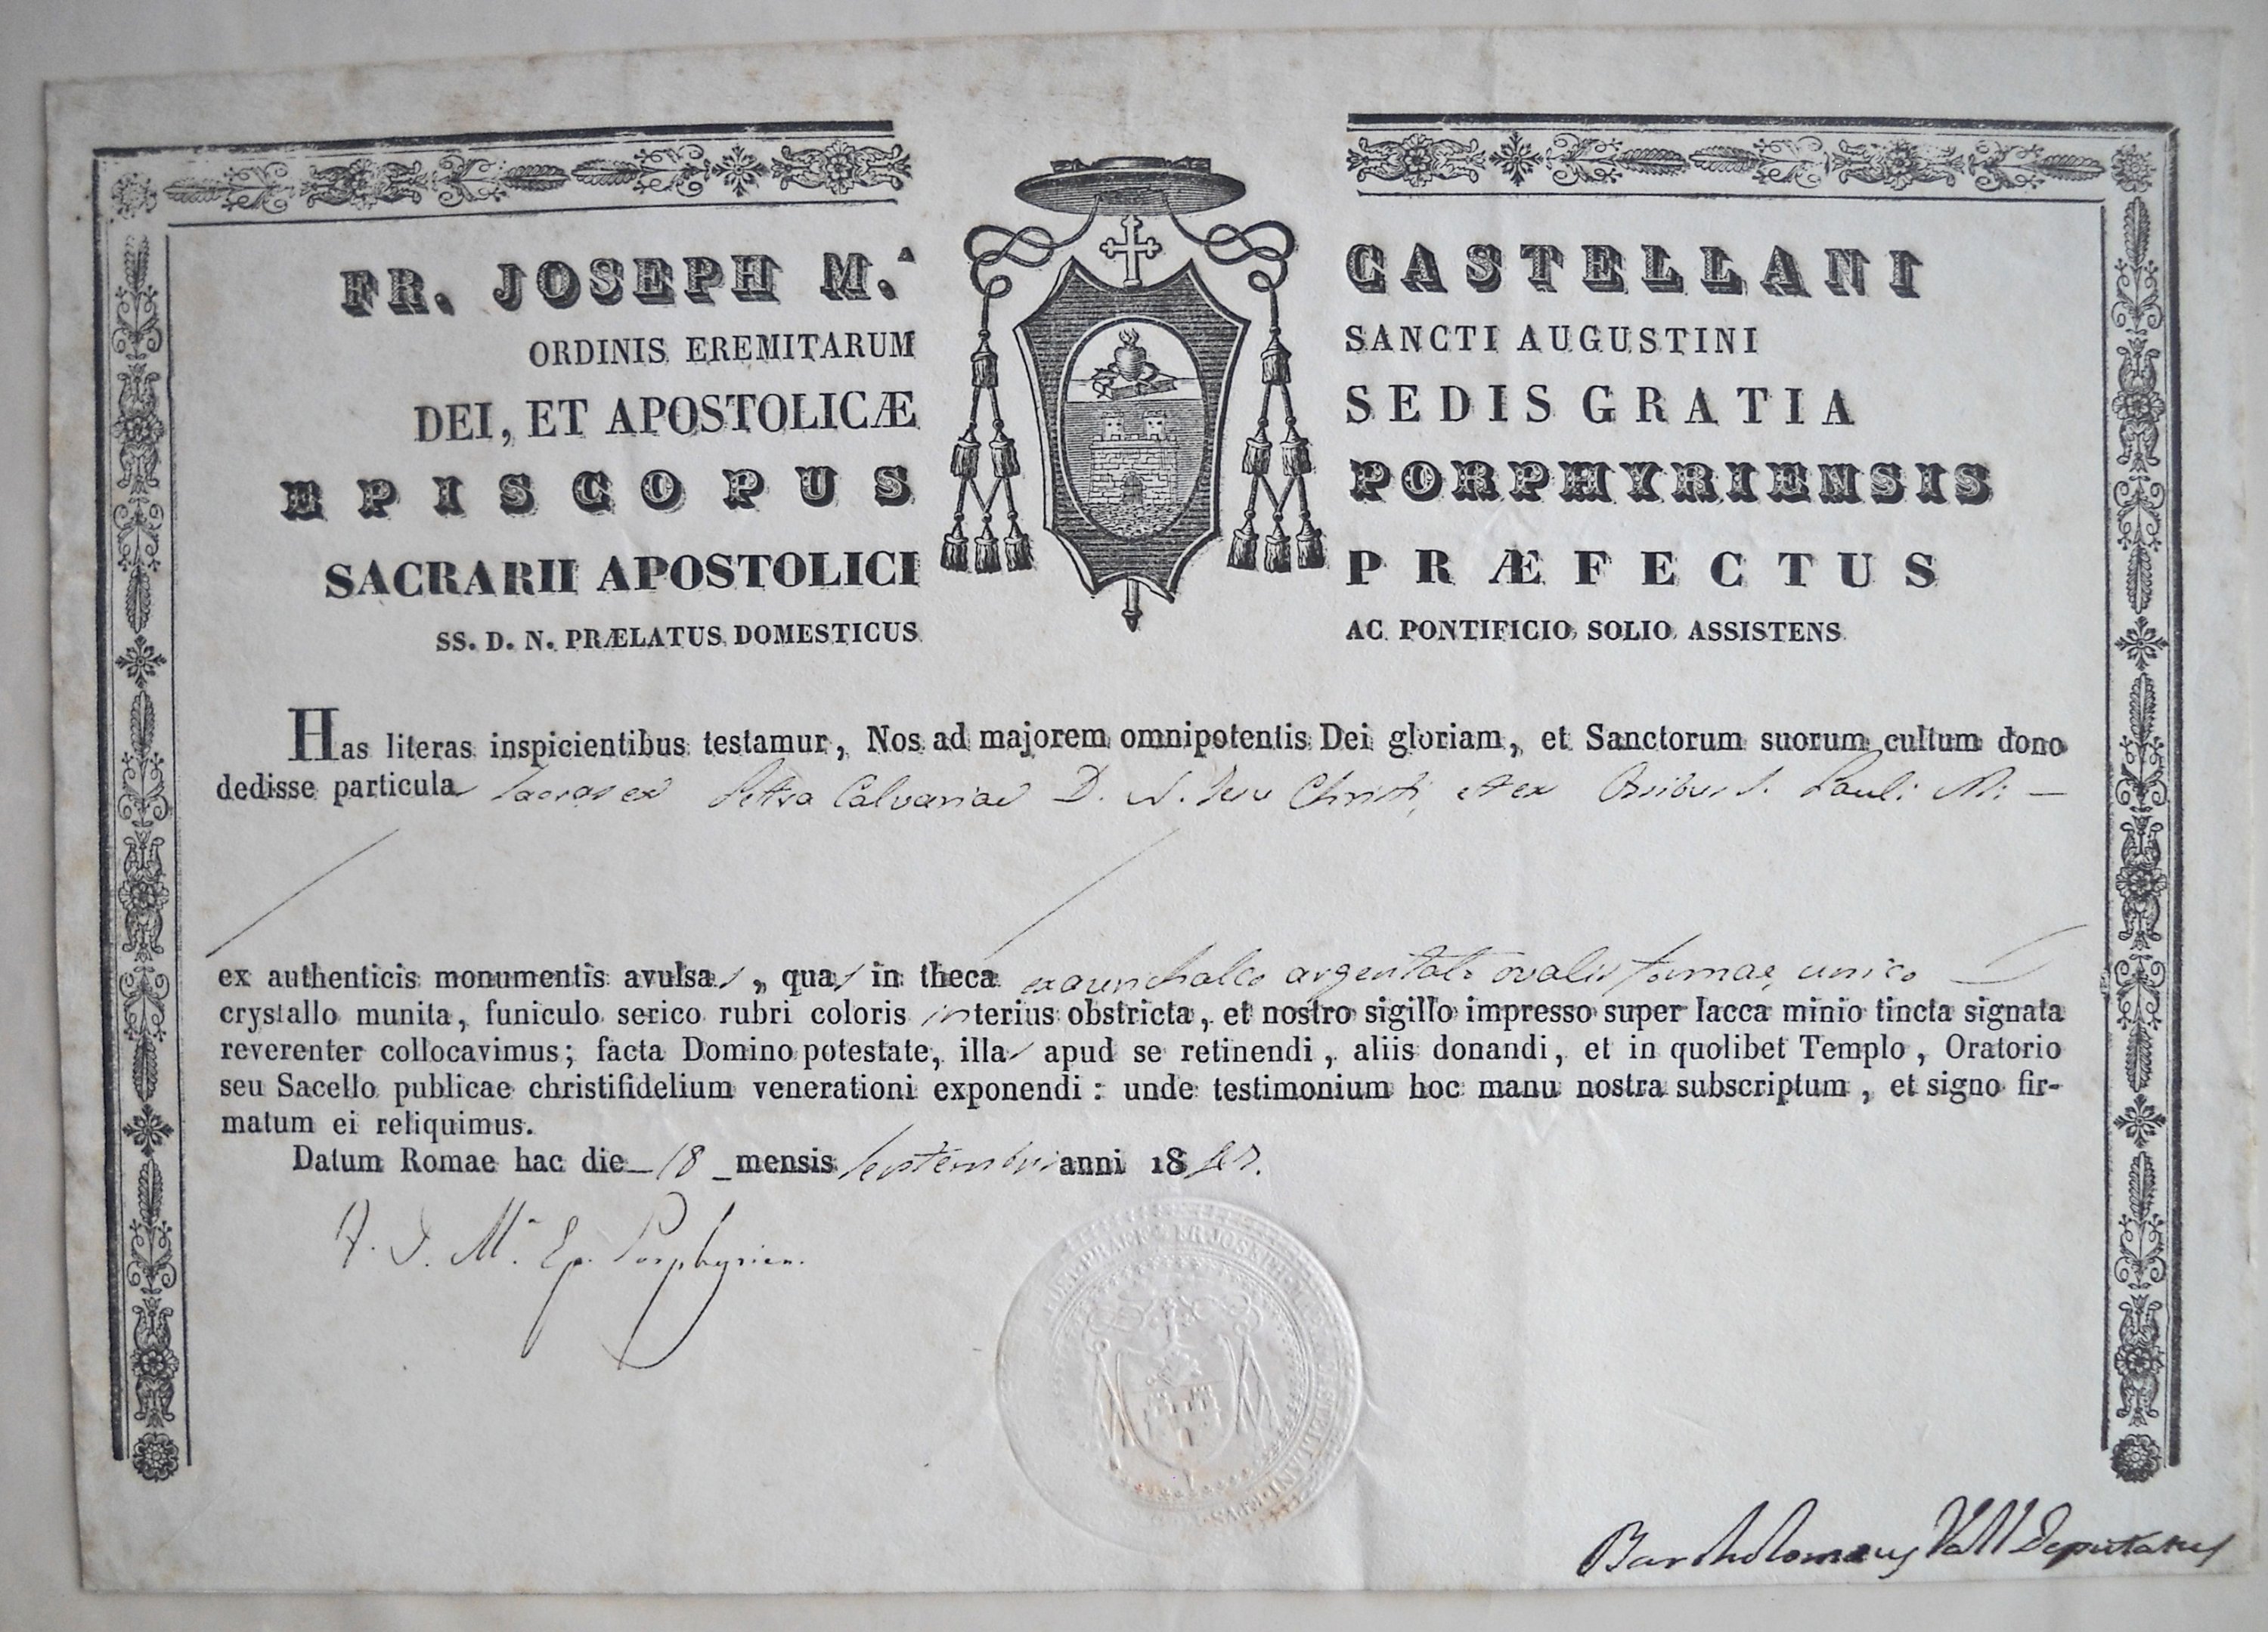 FR. JOSEPH M.A CASTELLANI
ORDINIS EREMITARUM SANCTI AUGUSTINI
DEI, ET APOSTOLICÆ SEDIS GRATIA
EPISCOPUS PORPHYRIENSIS
SACRARII APOSTOLICI PRÆFECTUS
SS. D. N. PRÆLATUS DOMESTICUS AC PONTIFICIO SOLIO ASSISTENS
Has literas inspicientibus testamur, Nos ad majorem omnipotentis Dei gloriam, et Sanctorum suorum cultum dono
dedisse particulas sacras ex Petra Calvariae D. N. Jesu Christi, et ex Ossibus S. Pauli
ex authenticis monumentis avulsas, quas in theca ex aurichalco argentato ovalis formae, unico
crystallo munita, funiculo serico rubri coloris interius obstricta, et nostro sigillo impresso super lacca minio tincta signata
reverenter collocavimus; facta Domino potestate, illas apud se retinendi, aliis donandi, et in quolibet Templo, Oratorio
seu Sacello publicae christifidelium venerationi exponendi: unde testimonium hoc manu nostra subscriptum, et signo fir-
matum ei reliquimus.
Datum Romae hac die 18 mensis Septembris anni 1847.
F. J. M.a Ep. Porphyrien.
PRAEF. FR. JOSEPH. CASTELLANI
Bartholomeus Deputatus